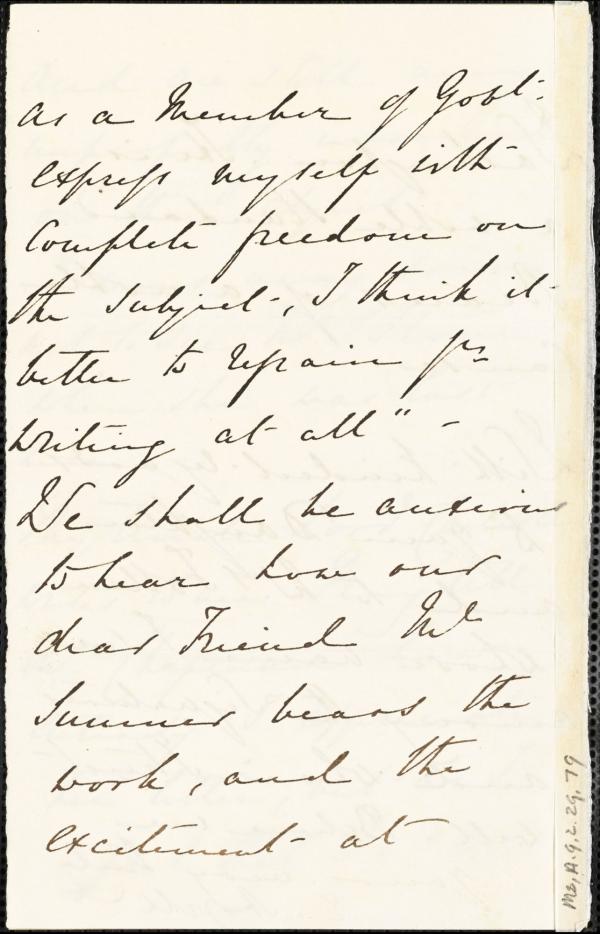 as a Member of Govt.
express myself with
complete freedom on
the subject, I think it
better to refrain frm
writing at all" -
We shall be anxious
to hear how our
dear Friend Mr
Sumner bears the
work, and the
excitement at
Ms. A. 9. 2. 29. 79